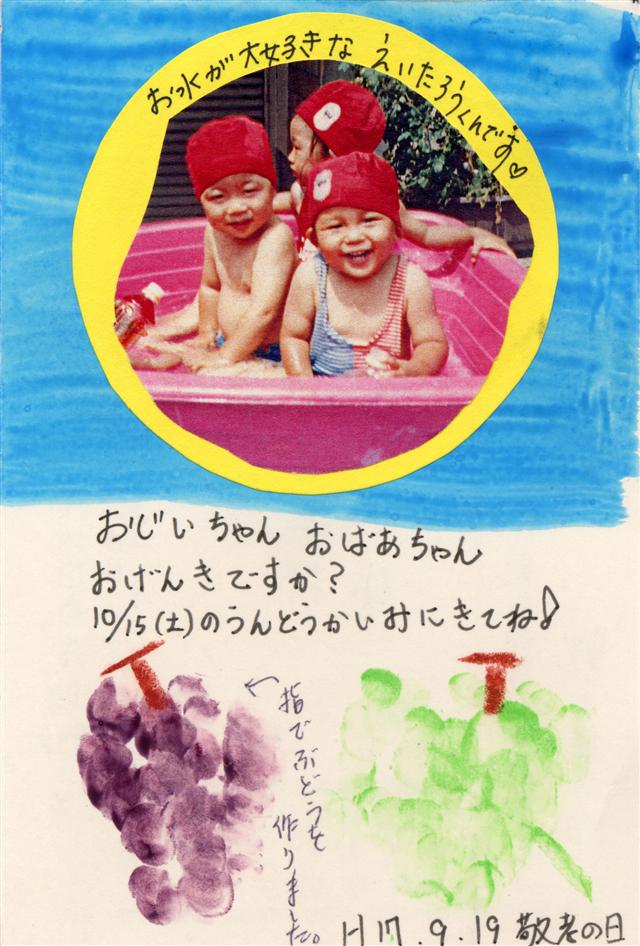 お水が大好きな えいたろうくんです♡
おじいちゃん おばあちゃん
おげんきですか？
10/15(土)のうんどうかいみにきてね♪
←指でぶどうを
作りました。
H17.9.19 敬老の日